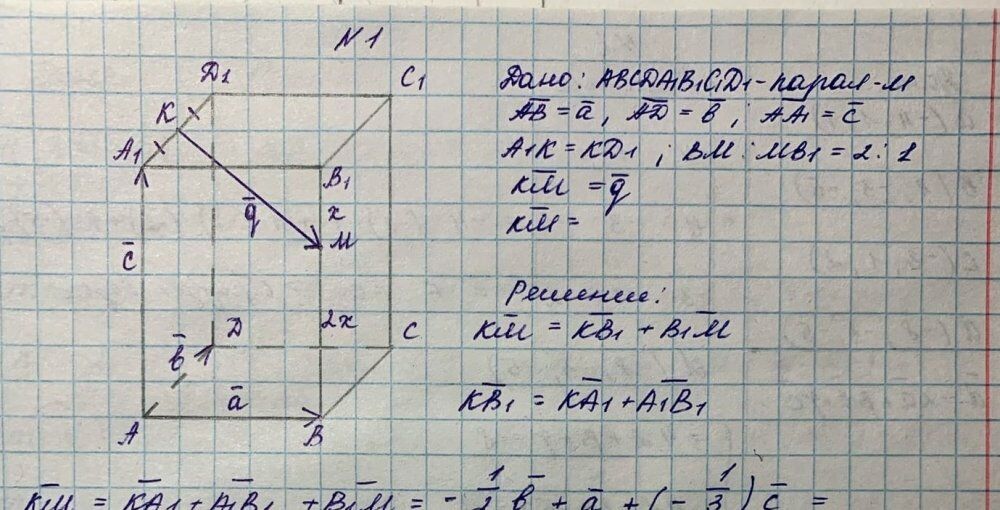 N1
D1
C1
K
A1
B1
q̄
x
M
c̄
2x
D
C
b̄
ā
A
B
Дано: ABCDA1B1C1D1-парал-м
A̅B̅ = ā, A̅D̅ = b̄; A̅A̅1 = c̄
A1K = KD1; BM:MB1 = 2:1
K̅M̅ = q̄
K̅M̅ =
Решение:
K̅M̅ = K̅B̅1 + B̅1M̅
K̅B̅1 = K̅A̅1 + A̅1B̅1
K̅M̅ = K̅A̅1 + A̅1B̅1 + B̅1M̅ = - 1/2 b̄ + ā + (- 1/3) c̄ =